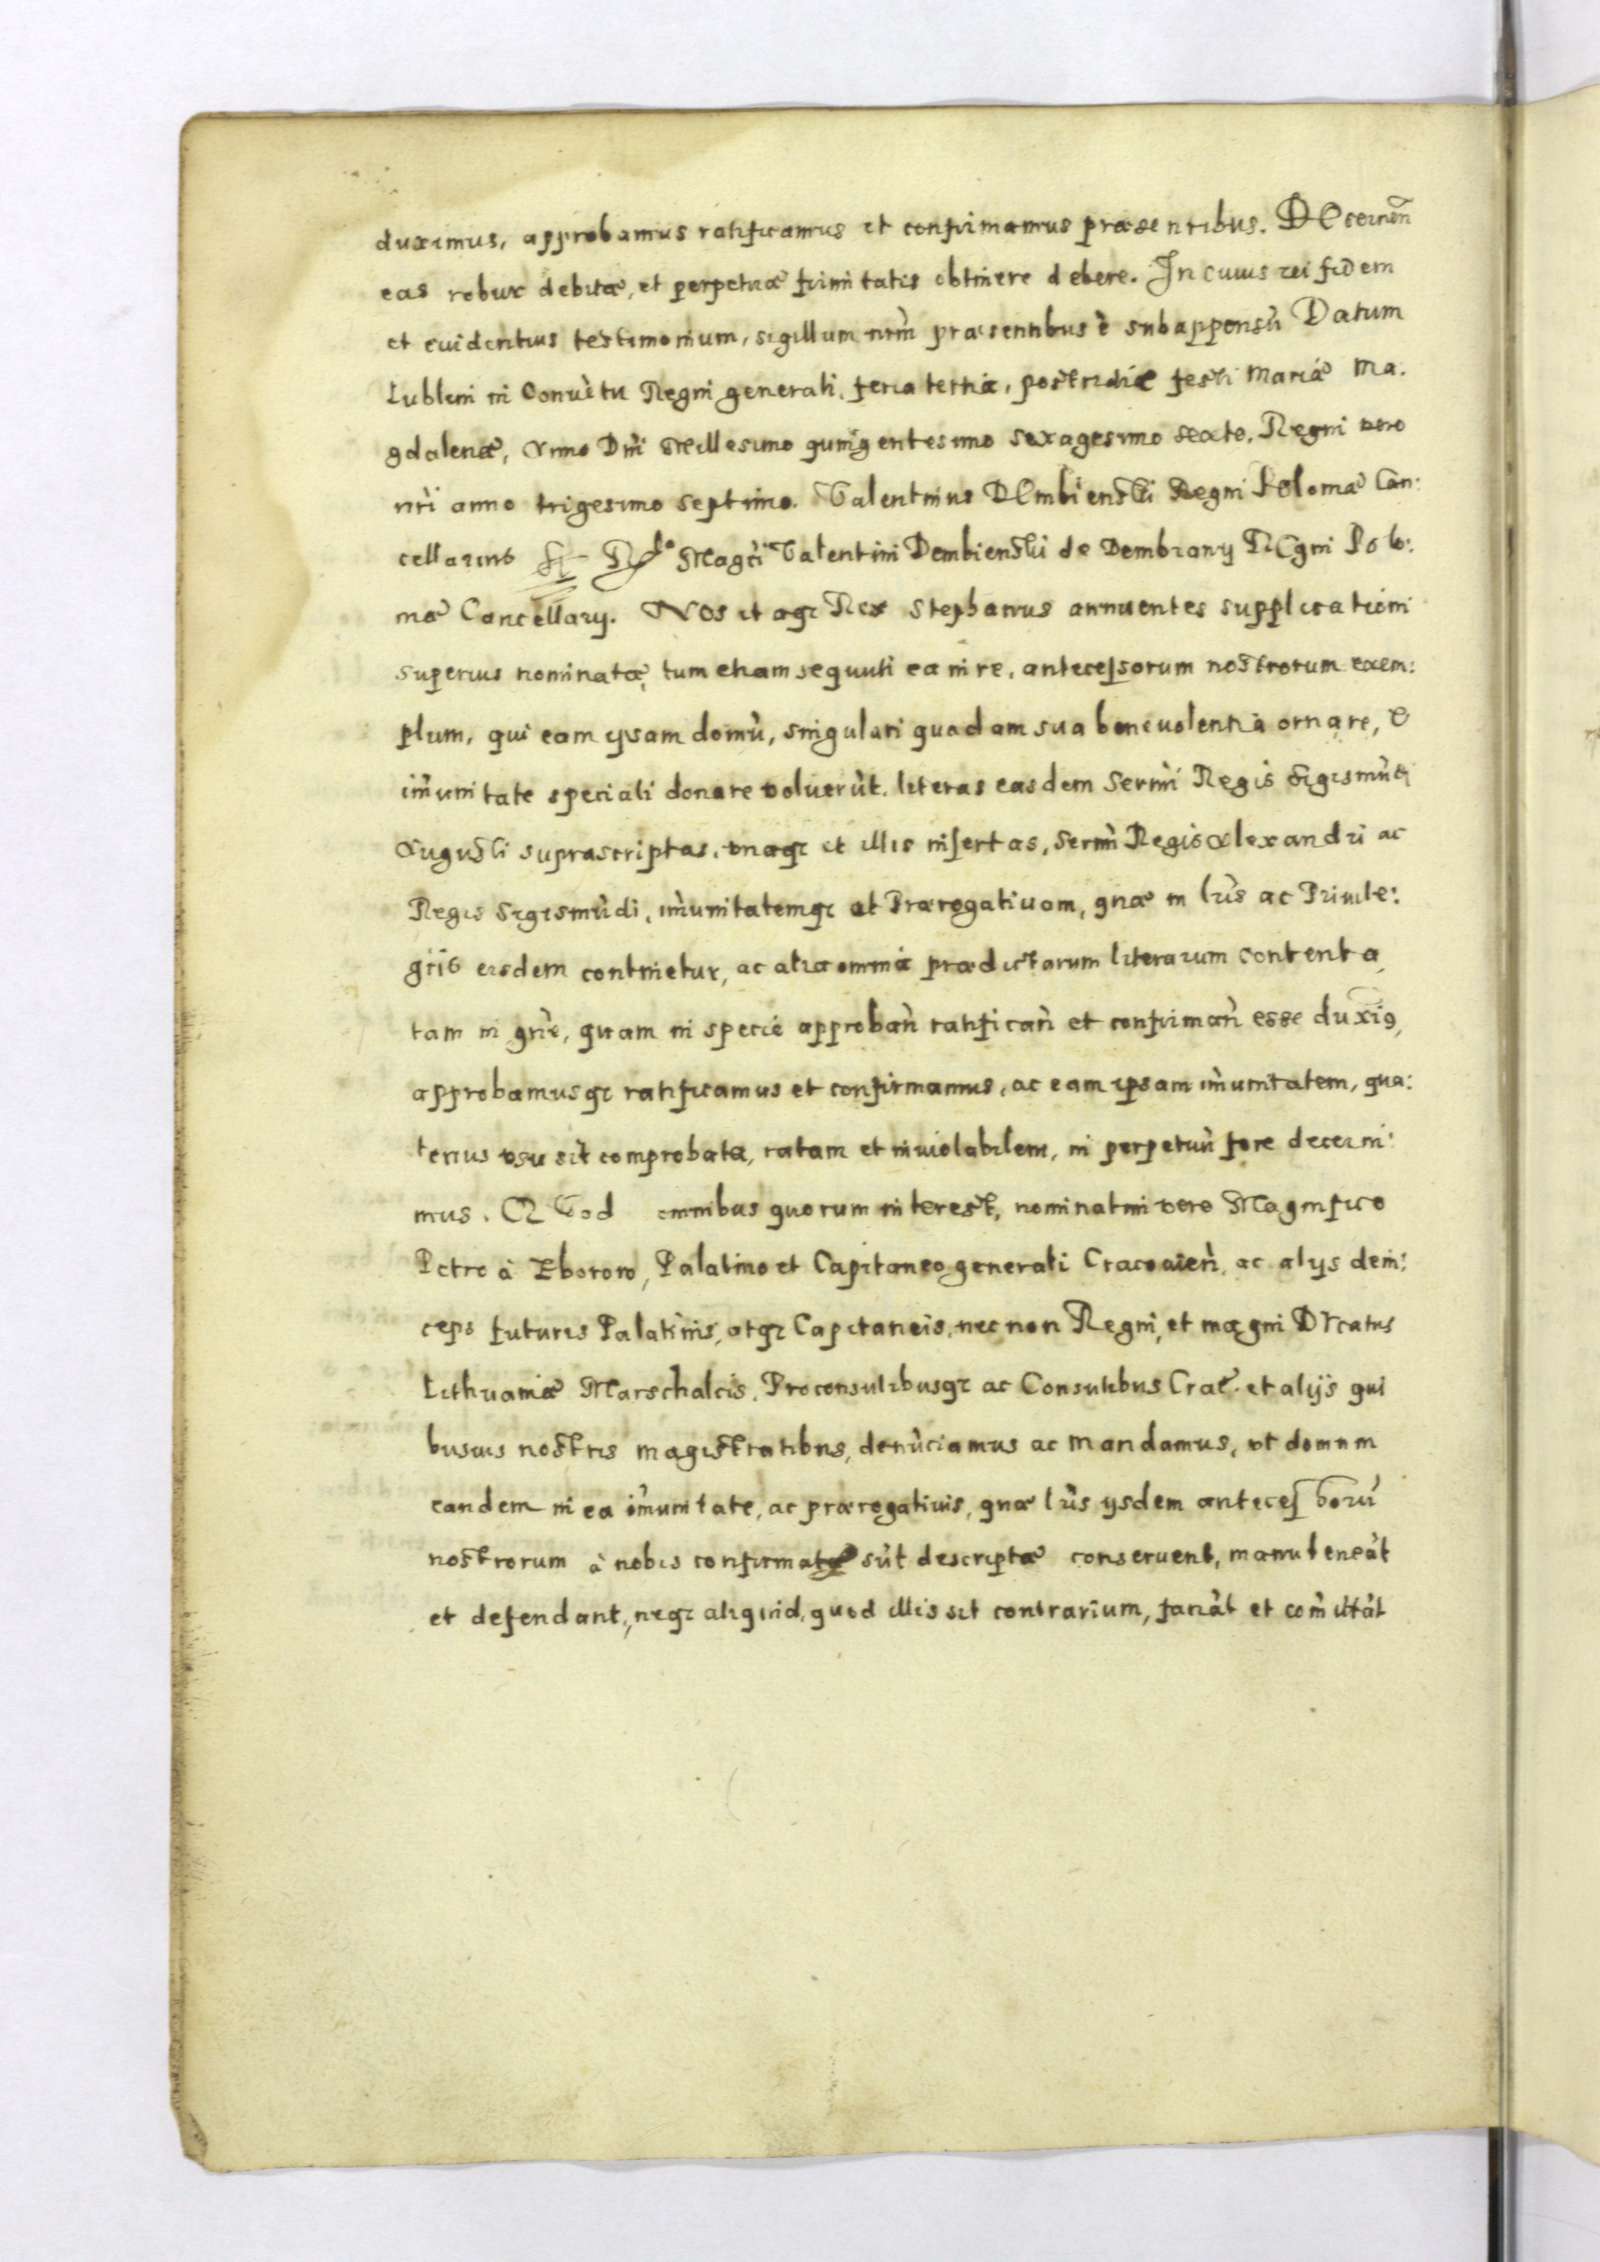 duximus, approbamus ratificamus et confirmamus præsentibus. DEcernen̄
eas robur debitæ, et perpetuæ firmitatis obtinere debere. In cuius rei fidem
et euidentius testimonium, sigillum nrm̄ præsentibus ē subappensū Datum
Lublini in Conuētu Regni generali, feria tertia, postridie festi Mariæ Ma.
gdalenæ, Anno Dnī Millesimo quingentesimo sexagesimo sexto, Regni vero
nrī anno trigesimo septimo. Valentinus DEmbienski Regni Poloniæ Can:
cellarius Maḡci Valentini Dembienski de Dembiany REgni Polo:
niæ Cancellary. NOs itaqz Rex Stephanus annuentes supplicationi
superius nominatæ, tum etiam sequuti ea in re, antecessorum nostrorum exem:
plum, qui eam ipsam domū, singulari quadam sua beneuolentia ornare, &
im̄unitate speciali donare voluerūt. literas easdem Sermī Regis Sigismūdi
Augusti suprascriptas, vnaqz et illis insertas, Sermī Regis Alexandri ac
Regis Sigismūdi, im̄unitatemqz et Prærogatiuam, quæ in lrīs ac Priuile:
giis eisdem continetur, ac alia omnia prædictarum literarum contenta
tam in gnr̄e, quam in specie approban̄ ratifican̄ et confirman̄ esse duxi9,
approbamusqz ratificamus et confirmamus, ac eam ipsam im̄unitatem, qua:
tenus vsu sit comprobata, ratam et inuiolabilem, in perpetuū fore decerni:
mus. QVod omnibus quorum interest, nominatim vero Magnifico
Petro à Zborow, Palatino et Capitaneo generali Cracouien̄, ac alys dein:
ceps futuris Palatinis, atqz Capitaneis, nec non Regni, et magni DVcatus
Lithuaniæ Marschalcis, Proconsulibusqz ac Consulibus Crac̄. et alijs qui
busuis nostris magistratibus, denūciamus ac mandamus, vt domum
eandem in ea im̄unitate, ac prærogatiuis, quæ lrīs ysdem antecessorū
nostrorum à nobis confirmatæ sūt descriptæ conseruent, manuteneāt
et defendant, neqz aliquid, quod illis sit contrarium, faciāt et com̄ittāt